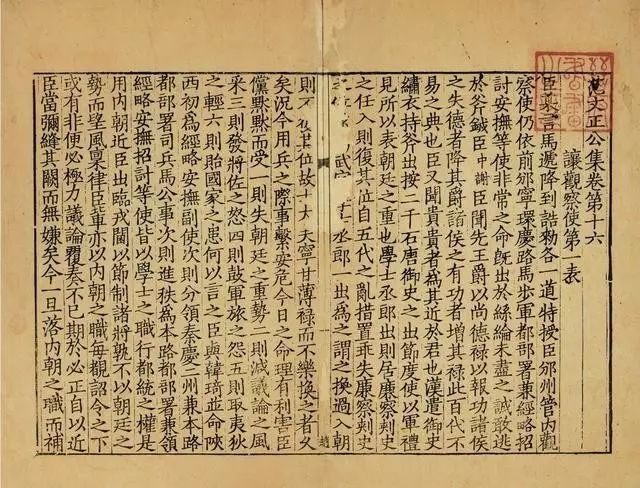 范文正公集卷第十六
讓觀察使第一表
臣某言馬遞降到誥勑各一道特授臣邠州管内觀
察使仍依前邠寧環慶路馬步軍都部署兼經略招
討安撫等使非常之命旣出於絲綸未盡之誠敢逃
於斧鉞臣中謝臣聞先王爵以尚德祿以報功諸侯
之失德者降其爵諸侯之有功者增其祿此百代不
易之典也臣又聞貴貴者爲其近於君也漢遣御史
繡衣持斧出按二千石唐御史之出節度使以軍禮
見所以表朝廷之重也學士丞郎出則居廉察刺史
之任入則復其位自五代之亂措置乖失廉察刺史
武丞郎一出爲之謂之換過入朝
則不其位故寧甘薄祿而不樂換之者久
矣況今用兵之際事繫安危今日之命理有利害臣
儻默默而受一則失朝廷之重勢二則減議論之風
采三則發將佐之怒四則鼓軍旅之怨五則取夷狄
之輕六則貽國家之患何以言之臣與韓琦並命陝
西初爲經略安撫副使次則分領秦慶二州兼本路
都部署司兵馬公事次則進秩爲本路都部署兼領
經略安撫招討等使皆以學士之職行都統之權是
用内朝近臣出臨戎閫以節制諸將孰不以朝廷之
勢而望風稟律臣輩亦以内朝之職每覩詔令之下
或有非便必極力議論覆奏不已期於必正自以近
臣當彌縫其闕而無嫌矣今一旦落内朝之職而補